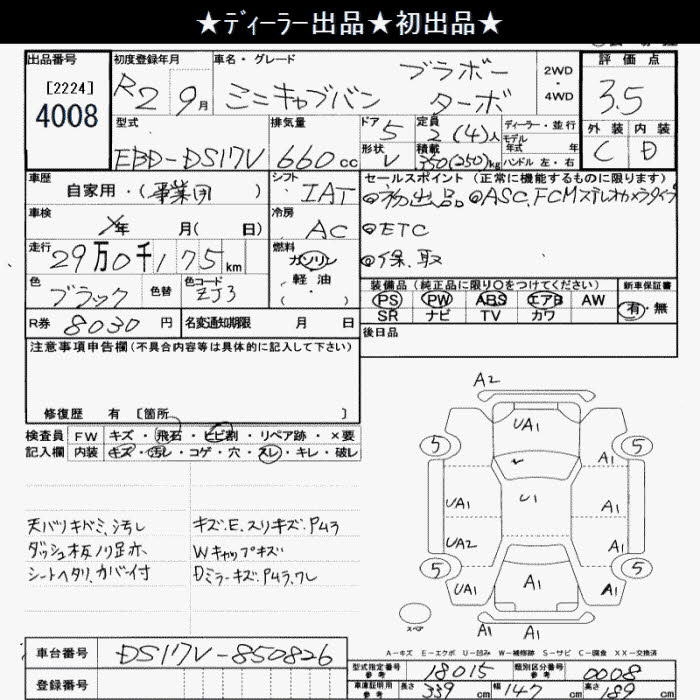 ★ディーラー出品★初出品★
出品番号 初度登録年月 車名・グレード 評価点
[2224]
4008
R2 9月 ミニキャブバン ブラボー ターボ
2WD
・
4WD
3.5
型式 排気量 ドア 定員 ディーラー・並行 外装 内装
5 2(4)人 モデル年式 年
EBD-DS17V 660cc
形状 V 積載 350(250)kg ハンドル 左・右
C D
車歴 シフト セールスポイント(正常に機能するものに限ります)
自家用・(事業用) IAT
◎初出品 ◎ASC,FCMステレオカメラタイプ
車検 年 月( 日) 冷房 AC
◎ETC
走行 29万0千175km 燃料 ガソリン
軽油
・( )
◎保、取
色 ブラック 色替 色コード ZJ3
装備品(純正品に限り○をつけてください) 新車保証書
PS PW ABS エアB AW
SR ナビ TV カワ
有・無
R券 8030円 名変通知期限 月 日
後日品
注意事項申告欄(不具合内容等は具体的に記入して下さい)
修復歴 有〔箇所 〕
検査員記入欄
FW キズ・飛石・ヒビ割・リペア跡・×要
内装 キズ・汚レ・コゲ・穴・スレ・キレ・破レ
天バリキドミ、汚レ
ダッシュ板ノリ足ホ
シートヘタリ、カバー付
キズ.E.スリキズ.P4ラ
Wキャップキズ
Dミラーキズ.P4ラ.ワレ
A2
UA1
5 5
A1
UA1 U1 A1
UA2 A1
5 5
UA1 A1 A1
A1 A1
スペア
A-キズ E-エクボ U-凹み W-補修跡 S-サビ C-腐食 XX-交換済
車台番号 DS17V-850826
登録番号
型式指定番号 参考 18015 類別区分番号 参考 0008
車庫証明用 参考 長さ 339cm 幅 147cm 高さ 189cm